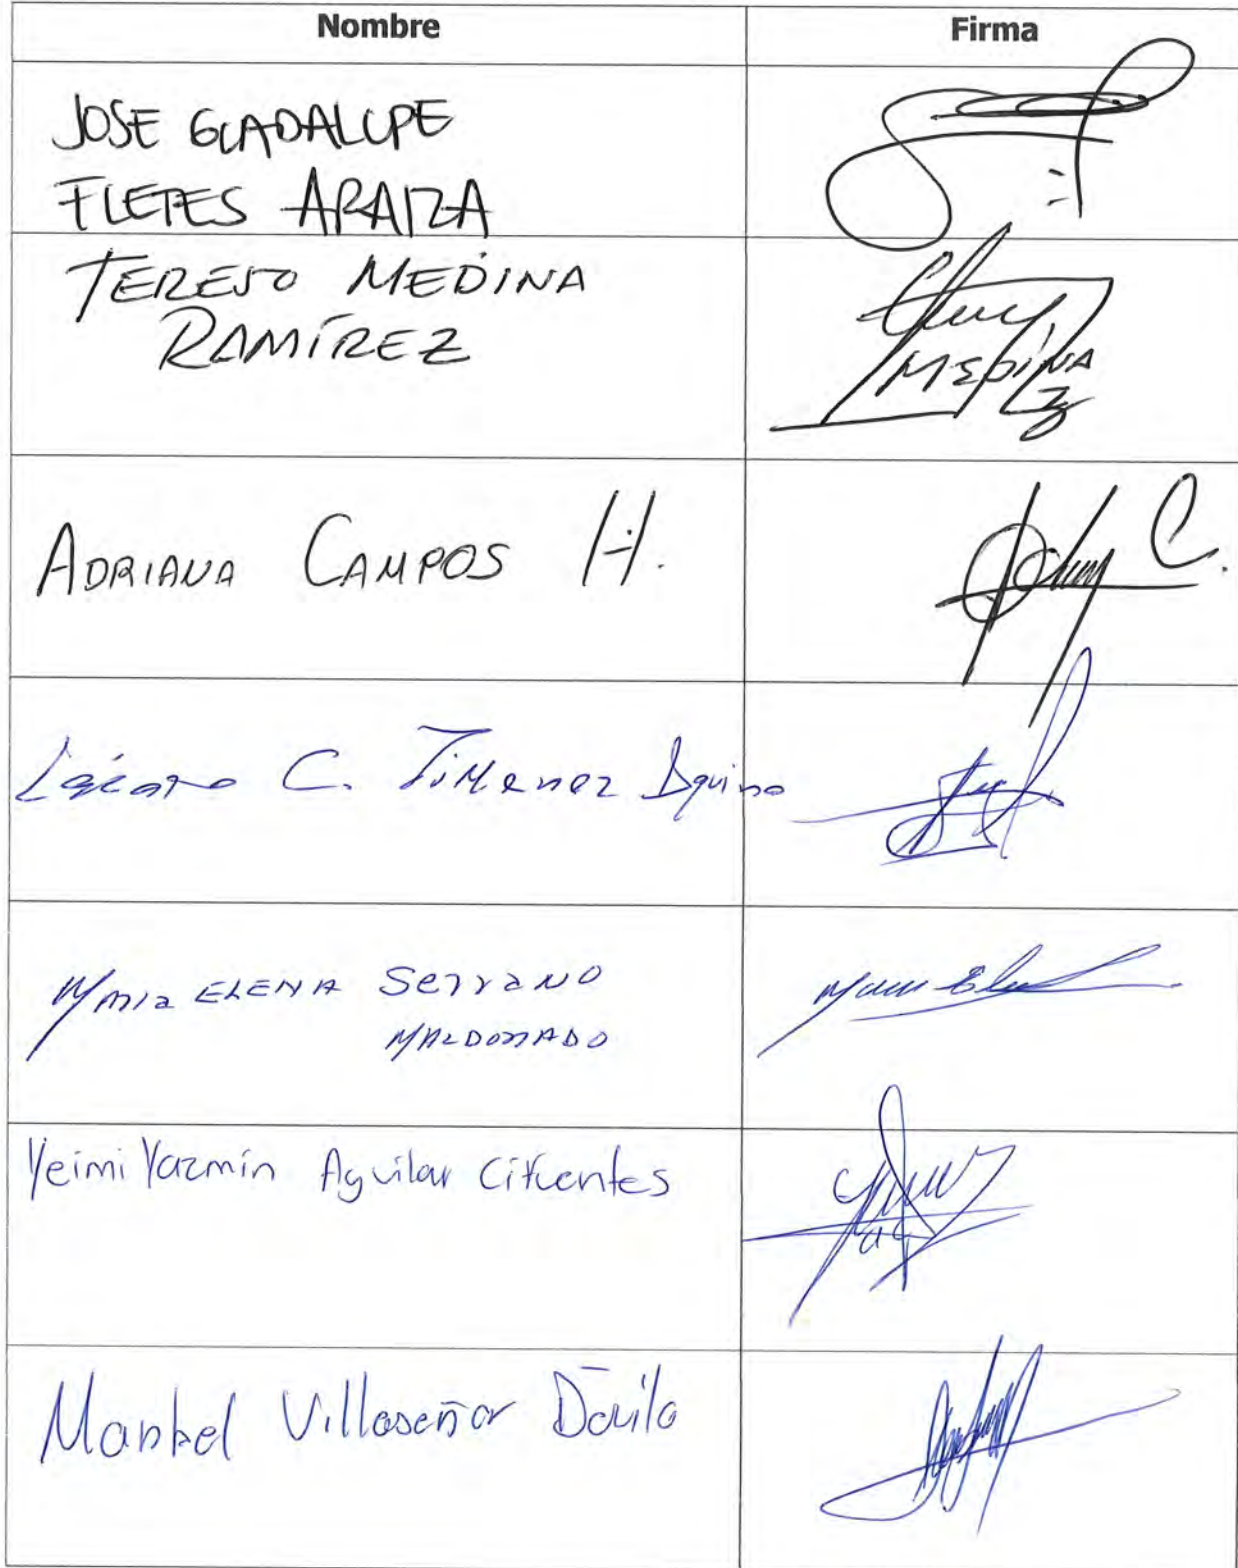 Nombre Firma
JOSE GUADALUPE
FLETES ARAIZA
TERESO MEDINA
RAMÍREZ
MEDINA
ADRIANA CAMPOS H.
C.
Lázaro C. Jimenez Aquino
Maria ELENA Serrano
MALDONADO
Yeimi Yazmín Aguilar Cifuentes
Maribel Villaseñor Dávila